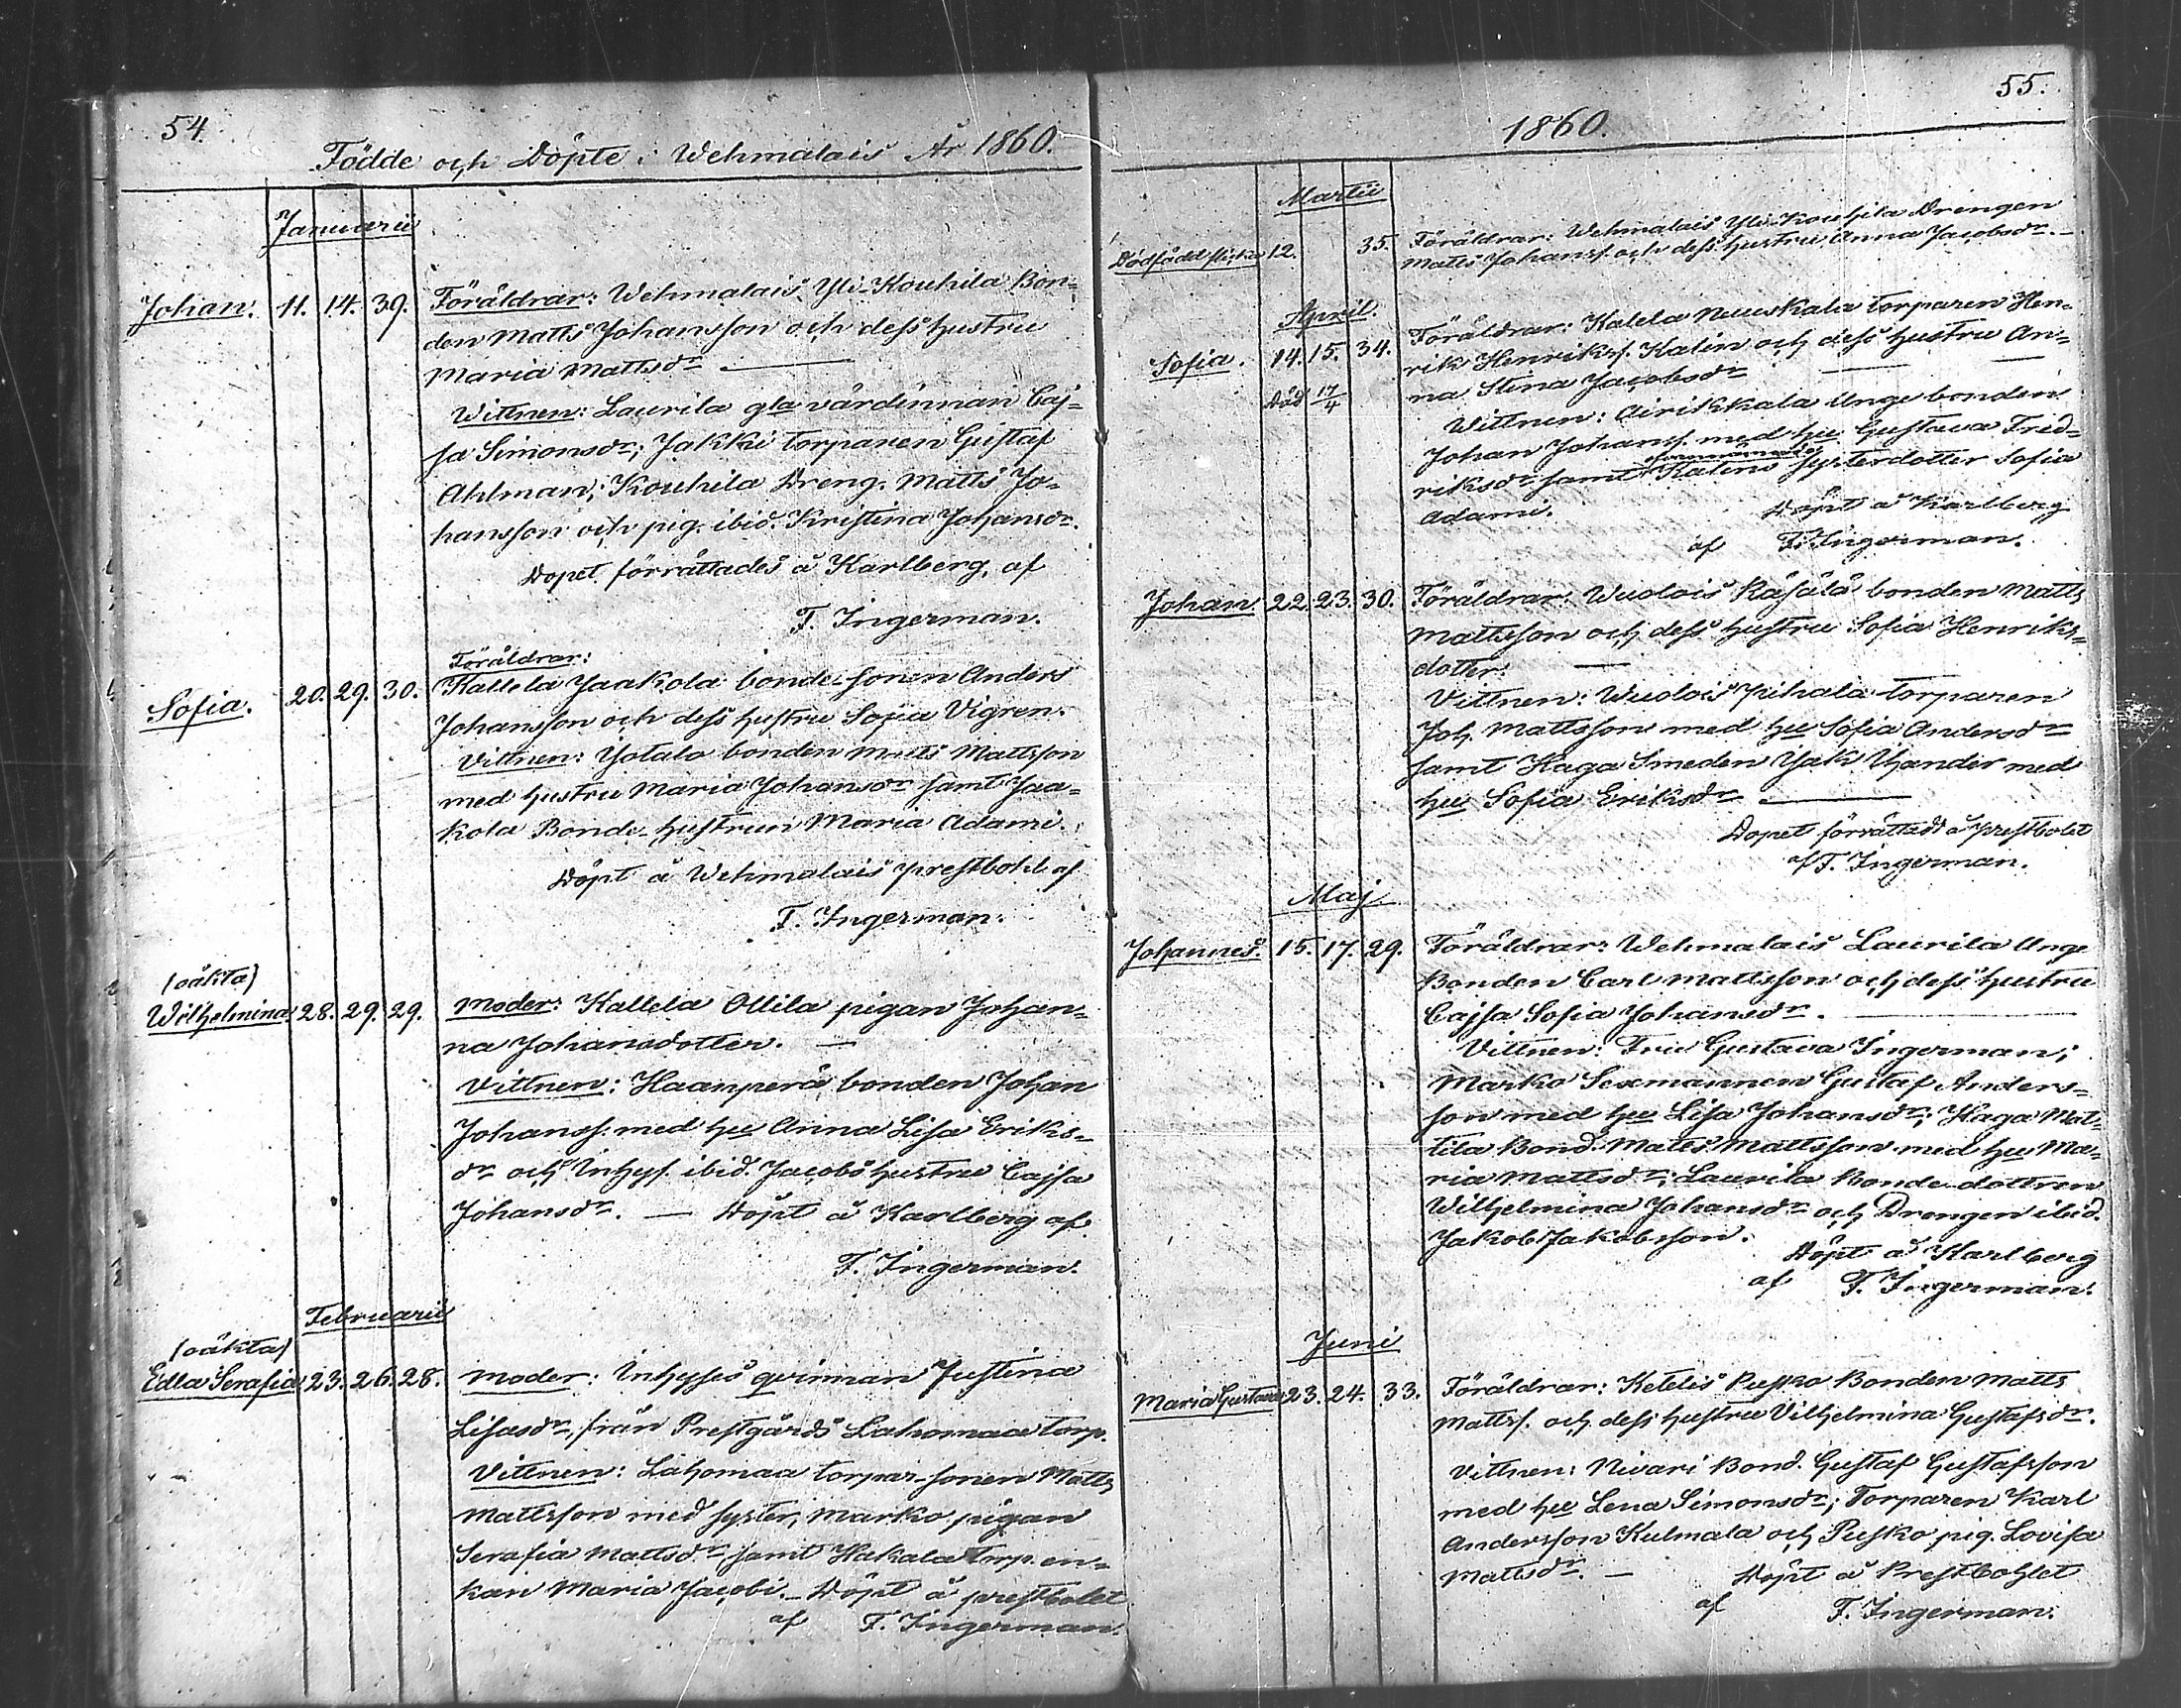 54.
Födde och Döpte i Wehmalais År 1860.
Januarii
Johan. 11. 14. 39. Föräldrar: Wehmalais Yli-Kouhila Bon=
den Matts Johansson och dess hustru
Maria Mattsdr.
Wittnen: Laurila gla värdinnan Caj=
sa Simonsdr; Jakki torparen Gustaf
Ahlman; Kouhila Dreng. Matts Jo=
hansson och pig. ibid. Kristina Johansdr.
Dopet förrättades å Karlberg, af
F. Ingerman.
Föräldrar:
Sofia. 20. 29. 30. Kallela Jaakola bonde-sonen Anders
Johansson och dess hustru Sofia Vigren.
Vittnen: Yotalo bonden Matts Mattsson
med hustru Maria Johansdr samt Jaa=
kola Bonde-hustrun Maria Adami.
Döpt å Wehmalais prestbohl af
F. Ingerman.
(oäkta)
Wilhelmina. 28. 29. 29. Moder: Kallela Ollila pigan Johan=
na Johansdotter. —
Vittnen: Haanperä bonden Johan
Johanss. med hu Anna Lisa Eriks=
dr och Inhys. ibid. Jacobs hustru Cajsa
Johansdr. — Döpt å Karlberg af
F. Ingerman.
Februarii
(oäkta)
Edla Serafia. 23. 26. 28. Moder: Inhyses qvinnan Justina
Lisasdr, från Prestgårds Lahomaa torp.
Vittnen: Lahomaa torpar-sonen Matts
Mattsson med syster, Marko pigan
Serafia Mattsdr, samt Hakala torp. en=
kan Maria Jacobi. — Döpt å prestbolet
af F. Ingerman.
55.
1860.
Martii
Dödfödd flicka 12. 35. Föräldrar: Wehmalais Yli-Kouhila Drengen
Matts Johanss. och dess hustru Anna Jacobsdr. —
April.
Sofia. 14. 15. 34. Föräldrar: Kalela Nuuskala torparen Hen=
rik Henrikss. Kalin och dess hustru An=
Död 17/4 na Stina Jacobsdr
Wittnen: Airikkala Unge bonden
Johan Johanss. med hu Gustava Fred=
riksdr samt Kalins systerdotter Sofia
Adami. Döpt å Karlberg
af F. Ingerman.
Johan. 22. 23. 30. Föräldrar: Wuolois Räsälä bonden Matts
Mattsson och dess hustru Sofia Henriks=
dotter. —
Vittnen: Wuolois Pihala torparen
Joh. Mattsson med hu Sofia Andersdr
samt Haga Smeden Isak Thander med
hu Sofia Eriksdr
Dopet förrättadt å prestbolet
af F. Ingerman.
Maj
Johannes. 15. 17. 29. Föräldrar: Wehmalais Laurila Unge
Bonden Carl Mattsson och dess hustru
Cajsa Sofia Johansdr.
Vittnen: Fru Gustava Ingerman;
Marko Sexmannen Gustaf Anders=
son med hu Lisa Johansdr; Haga Mat=
tila Bond. Matts Mattsson med hu Ma=
ria Mattsdr; Laurila Bonde-dottren
Wilhelmina Johansdr och Drengen ibid.
Jakob Jakobsson. Döpt å Karlberg
af F. Ingerman.
Juni
Maria Gustava 23. 24. 33. Föräldrar: Ketelis Pusko Bonden Matts
Mattss. och dess hustru Vilhelmina Gustafsdr.
Vittnen: Nivari Bond. Gustaf Gustafsson
med hu Lena Simonsdr; Torparen Karl
Andersson Kulmala och Pusko pig. Lovisa
Mattsdr. — Döpt å Prestbohlet
af F. Ingerman.